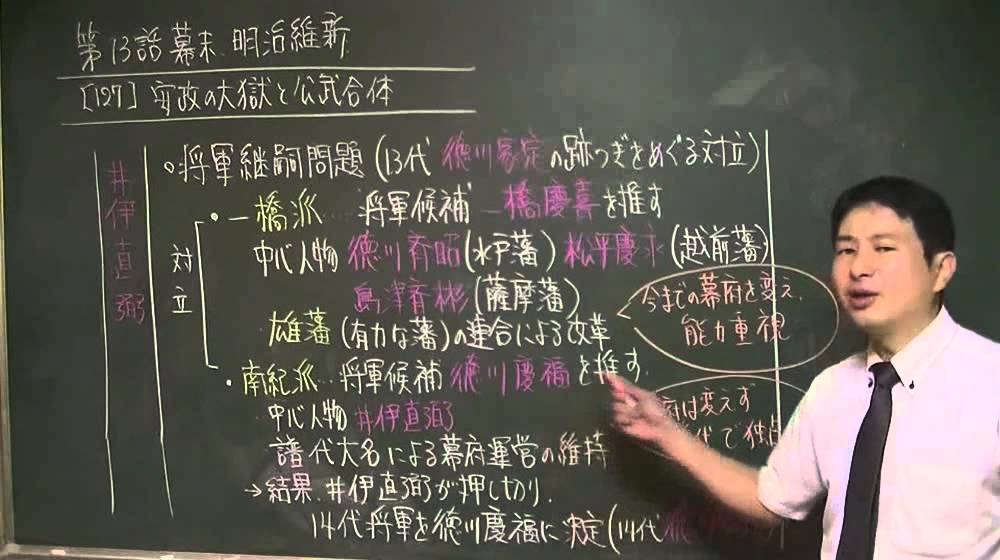 第13話 幕末 明治維新
[127] 安政の大獄と公武合体
井伊直弼
。将軍継嗣問題 (13代 徳川家定の跡つぎをめぐる対立)
対立
・一橋派… 将軍候補 一橋慶喜を推す
中心人物 徳川斉昭(水戸藩) 松平慶永(越前藩)
島津斉彬(薩摩藩)
雄藩(有力な藩)の連合による改革
今までの幕府を変え、
能力重視
・南紀派…将軍候補 徳川慶福を推す。
中心人物 井伊直弼
府は変えず
代で独占
譜代大名による幕府運営の維持
→結果.井伊直弼が押し切り.
14代将軍を徳川慶福に決定(14代